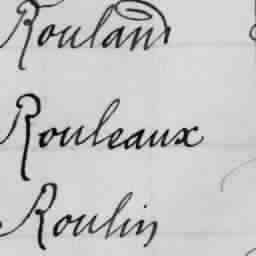 Rouland
Rouleaux
Roulin